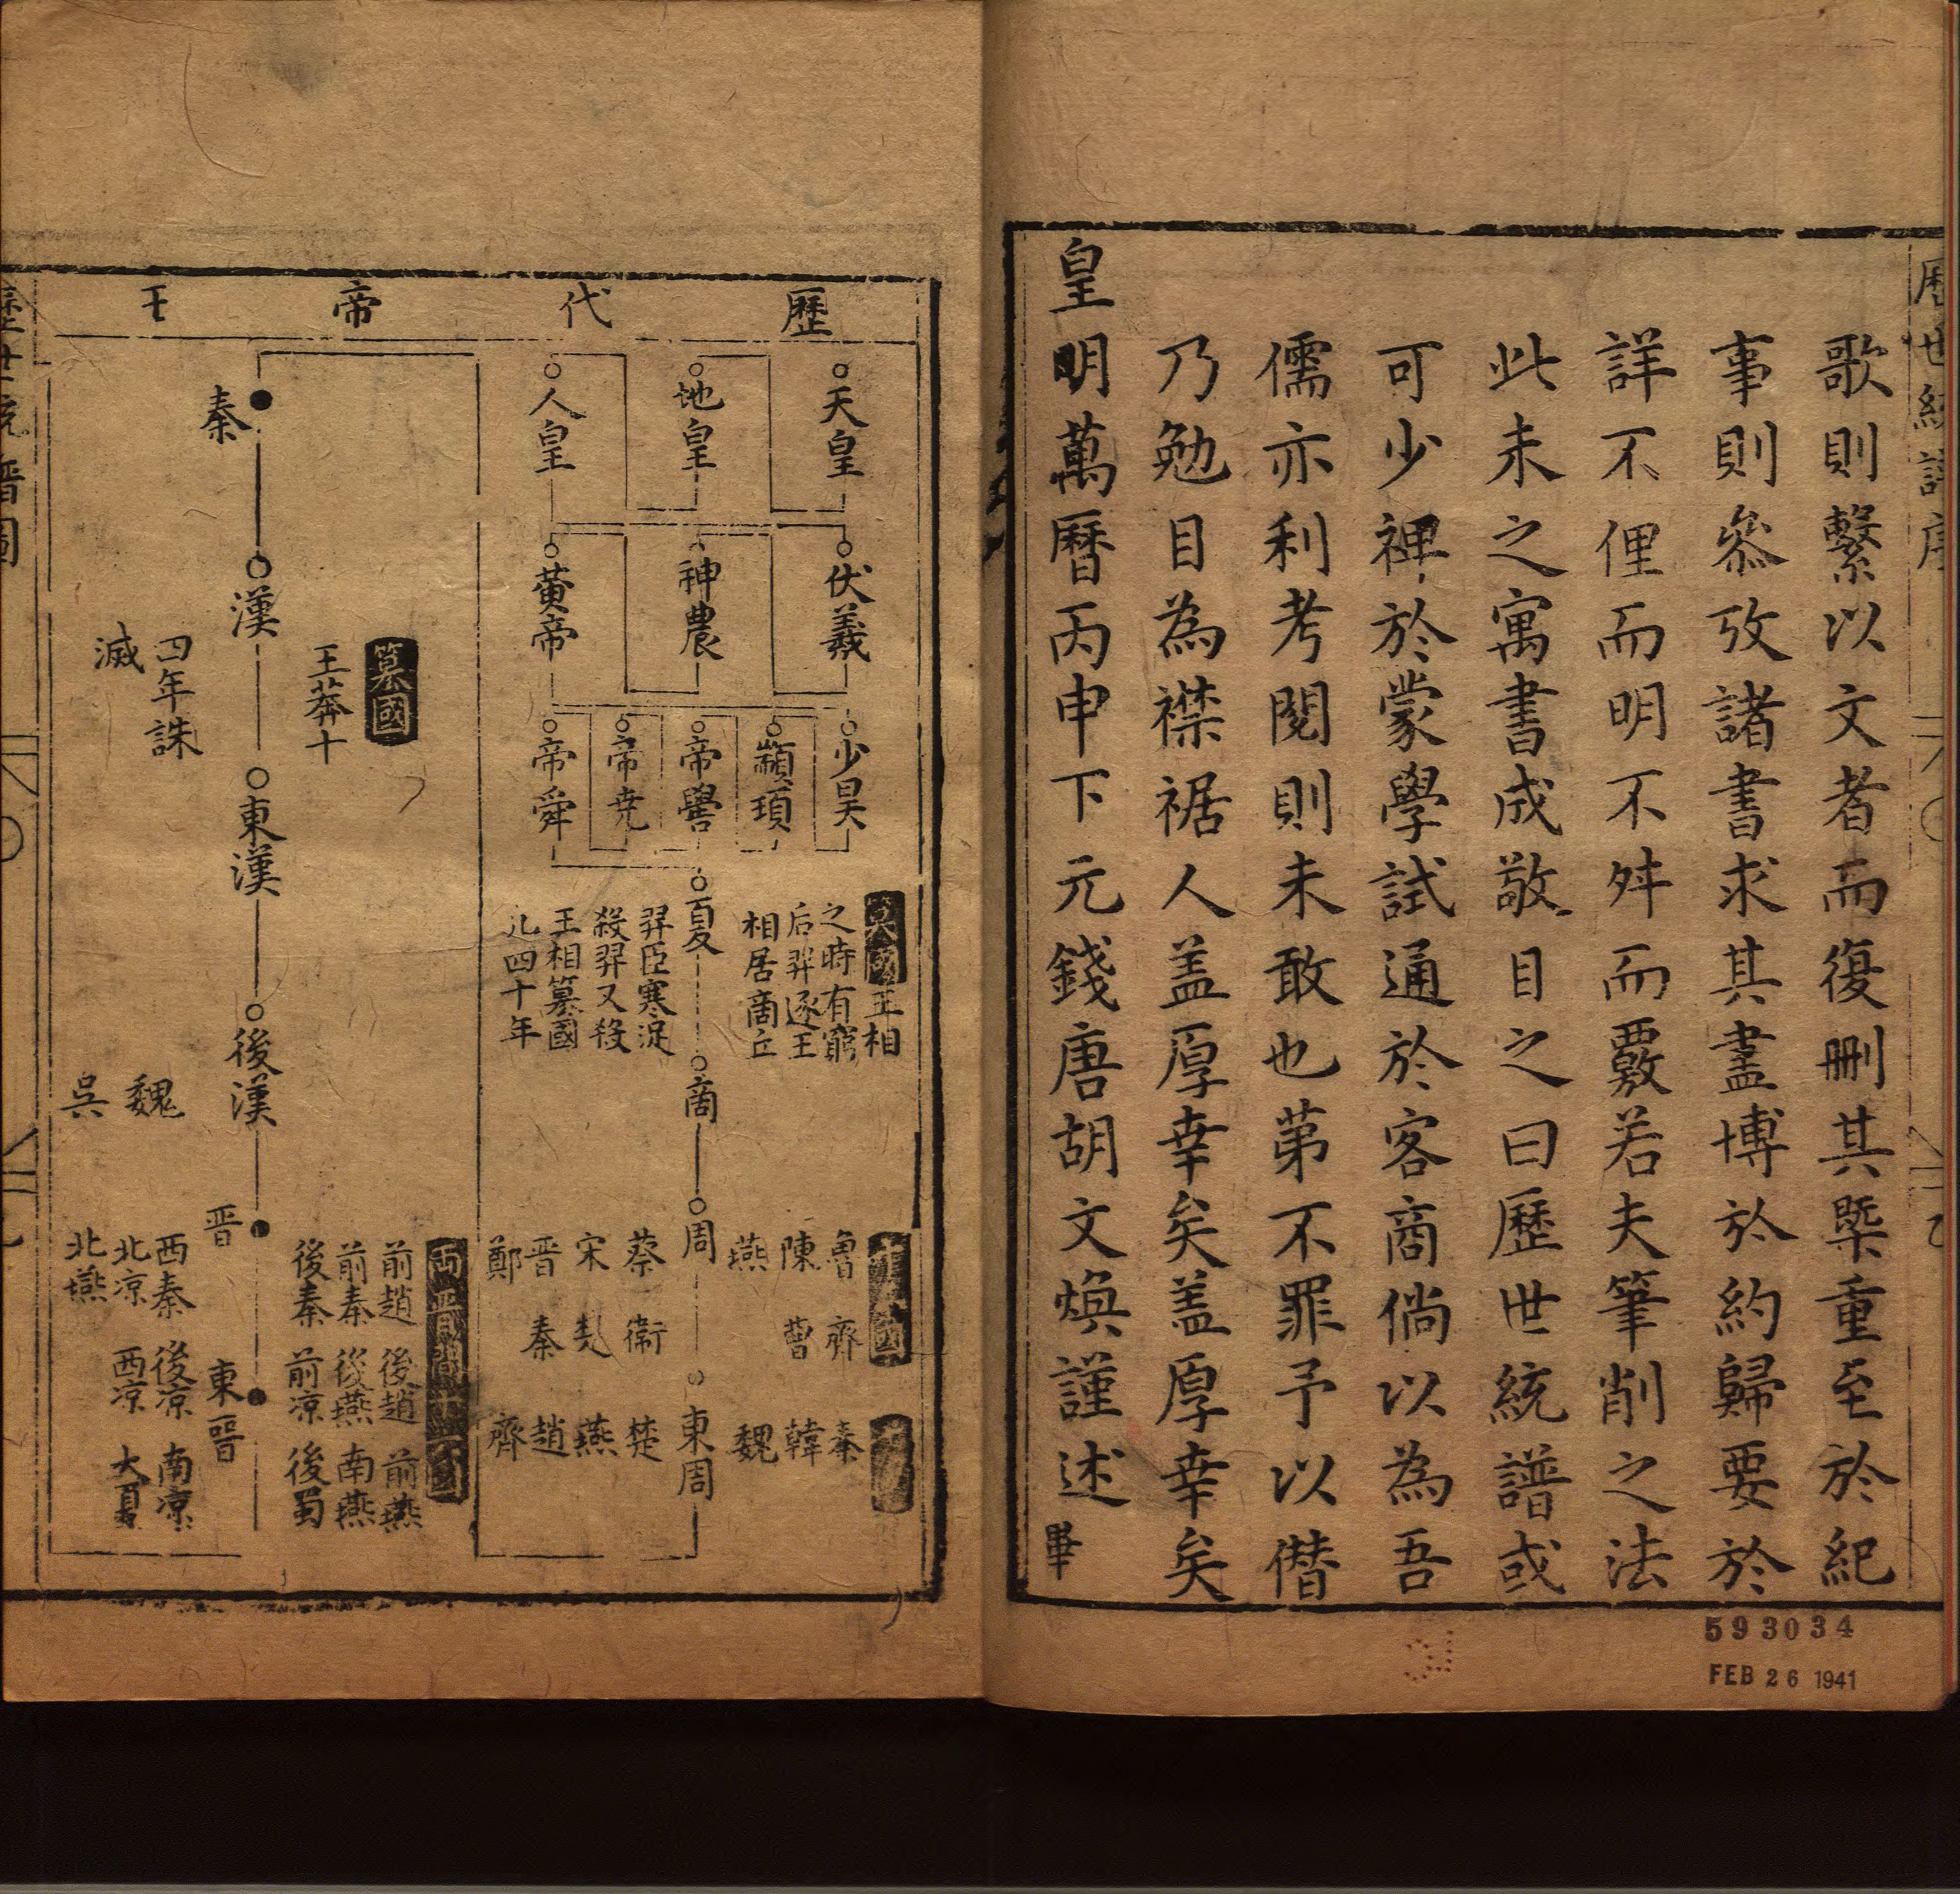 歌則繫以文者而復刪其槩重至於紀
事則叅攷諸書求其盡博於約歸要於
詳不俚而明不舛而覈若夫筆削之法
此未之寓書成敬目之曰歷世統譜或
可少裨於蒙學試通於客商倘以為吾
儒亦利考閱則未敢也第不罪予以僣
乃勉目為襟裾人盖厚幸矣盖厚幸矣
皇明萬曆丙申下元錢唐胡文煥謹述
畢
593034
FEB 26 1941
歷代帝王
天皇
地皇
人皇
伏羲
神農
黄帝
少昊
顓頊
帝嚳
帝尭
帝舜
夏
王相
之時有窮
后羿逐王
相居啇丘
羿臣寒浞
殺羿又殺
王相篡國
凡四十年
啇
周
魯 齊
陳 曹
燕
蔡 衞
宋
晋 秦
鄭
東周
秦
韓
魏
楚
燕
趙
齊
秦
漢
篡國
王莽十
四年誅
滅
東漢
後漢
魏
吳
晋
東晋
前趙 後趙 前燕
前秦 後燕 南燕
後秦 前凉 後蜀
西秦 後凉 南凉
北凉 西凉 大夏
北燕